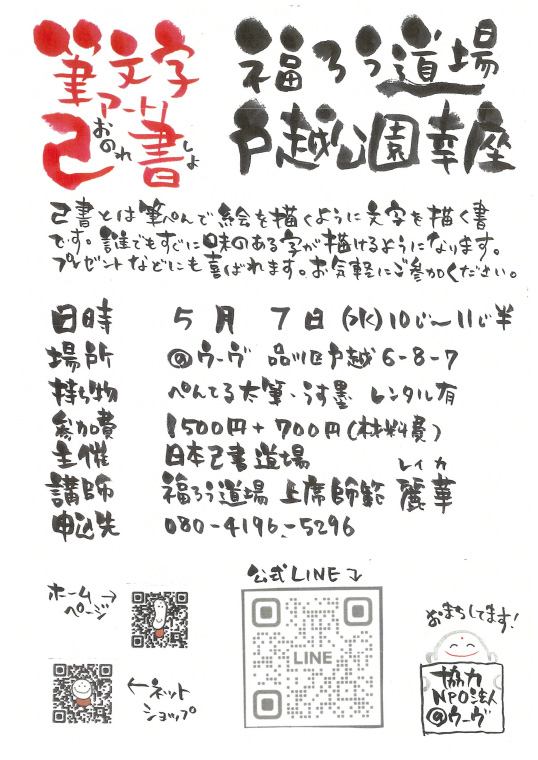 筆文字
アート!
己書
おのれ
しょ
福ろう道場
戸越公園幸座
己書とは筆ぺんで絵を描くように文字を描く書
です。誰でもすぐに味のある字が描けるようになります。
プレゼントなどにも喜ばれます。お気軽にご参加ください。
日時 5月7日(水)10じ〜11じ半
場所 @ウーヴ 品川区戸越6-8-7
持ち物 ぺんてる太筆・うす墨 レンタル有
参加費 1500円+700円(材料費)
主催 日本己書道場
レイカ
講師 福ろう道場 上席師範 麗華
申込先 080-4196-5296
公式LINE
ホーム
ページ
LINE
おまちしてます!
ネット
ショップ
協力
NPO法人
@ウーヴ